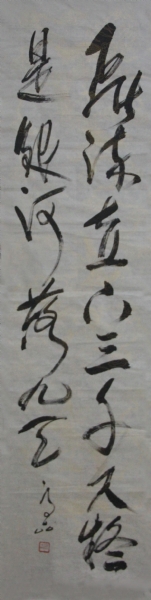 飛流直下三千尺疑
是銀河落九天